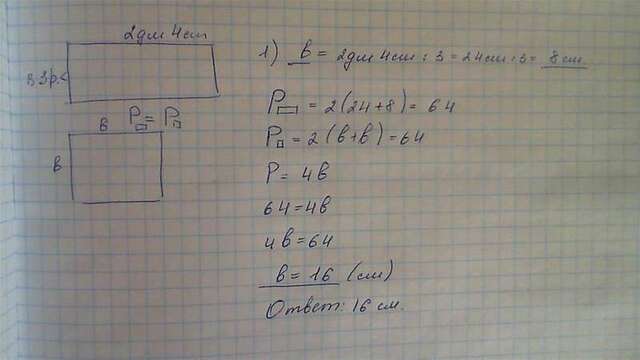 2дм 4см
в 3р.<
P▭ = P□
в
в
1) в = 2дм 4см : 3 = 24см : 3 = 8 см.
P▭ = 2(24+8) = 64
P□ = 2(в+в) = 64
P = 4в
64 = 4в
4в = 64
в = 16 (см)
Ответ: 16 см.